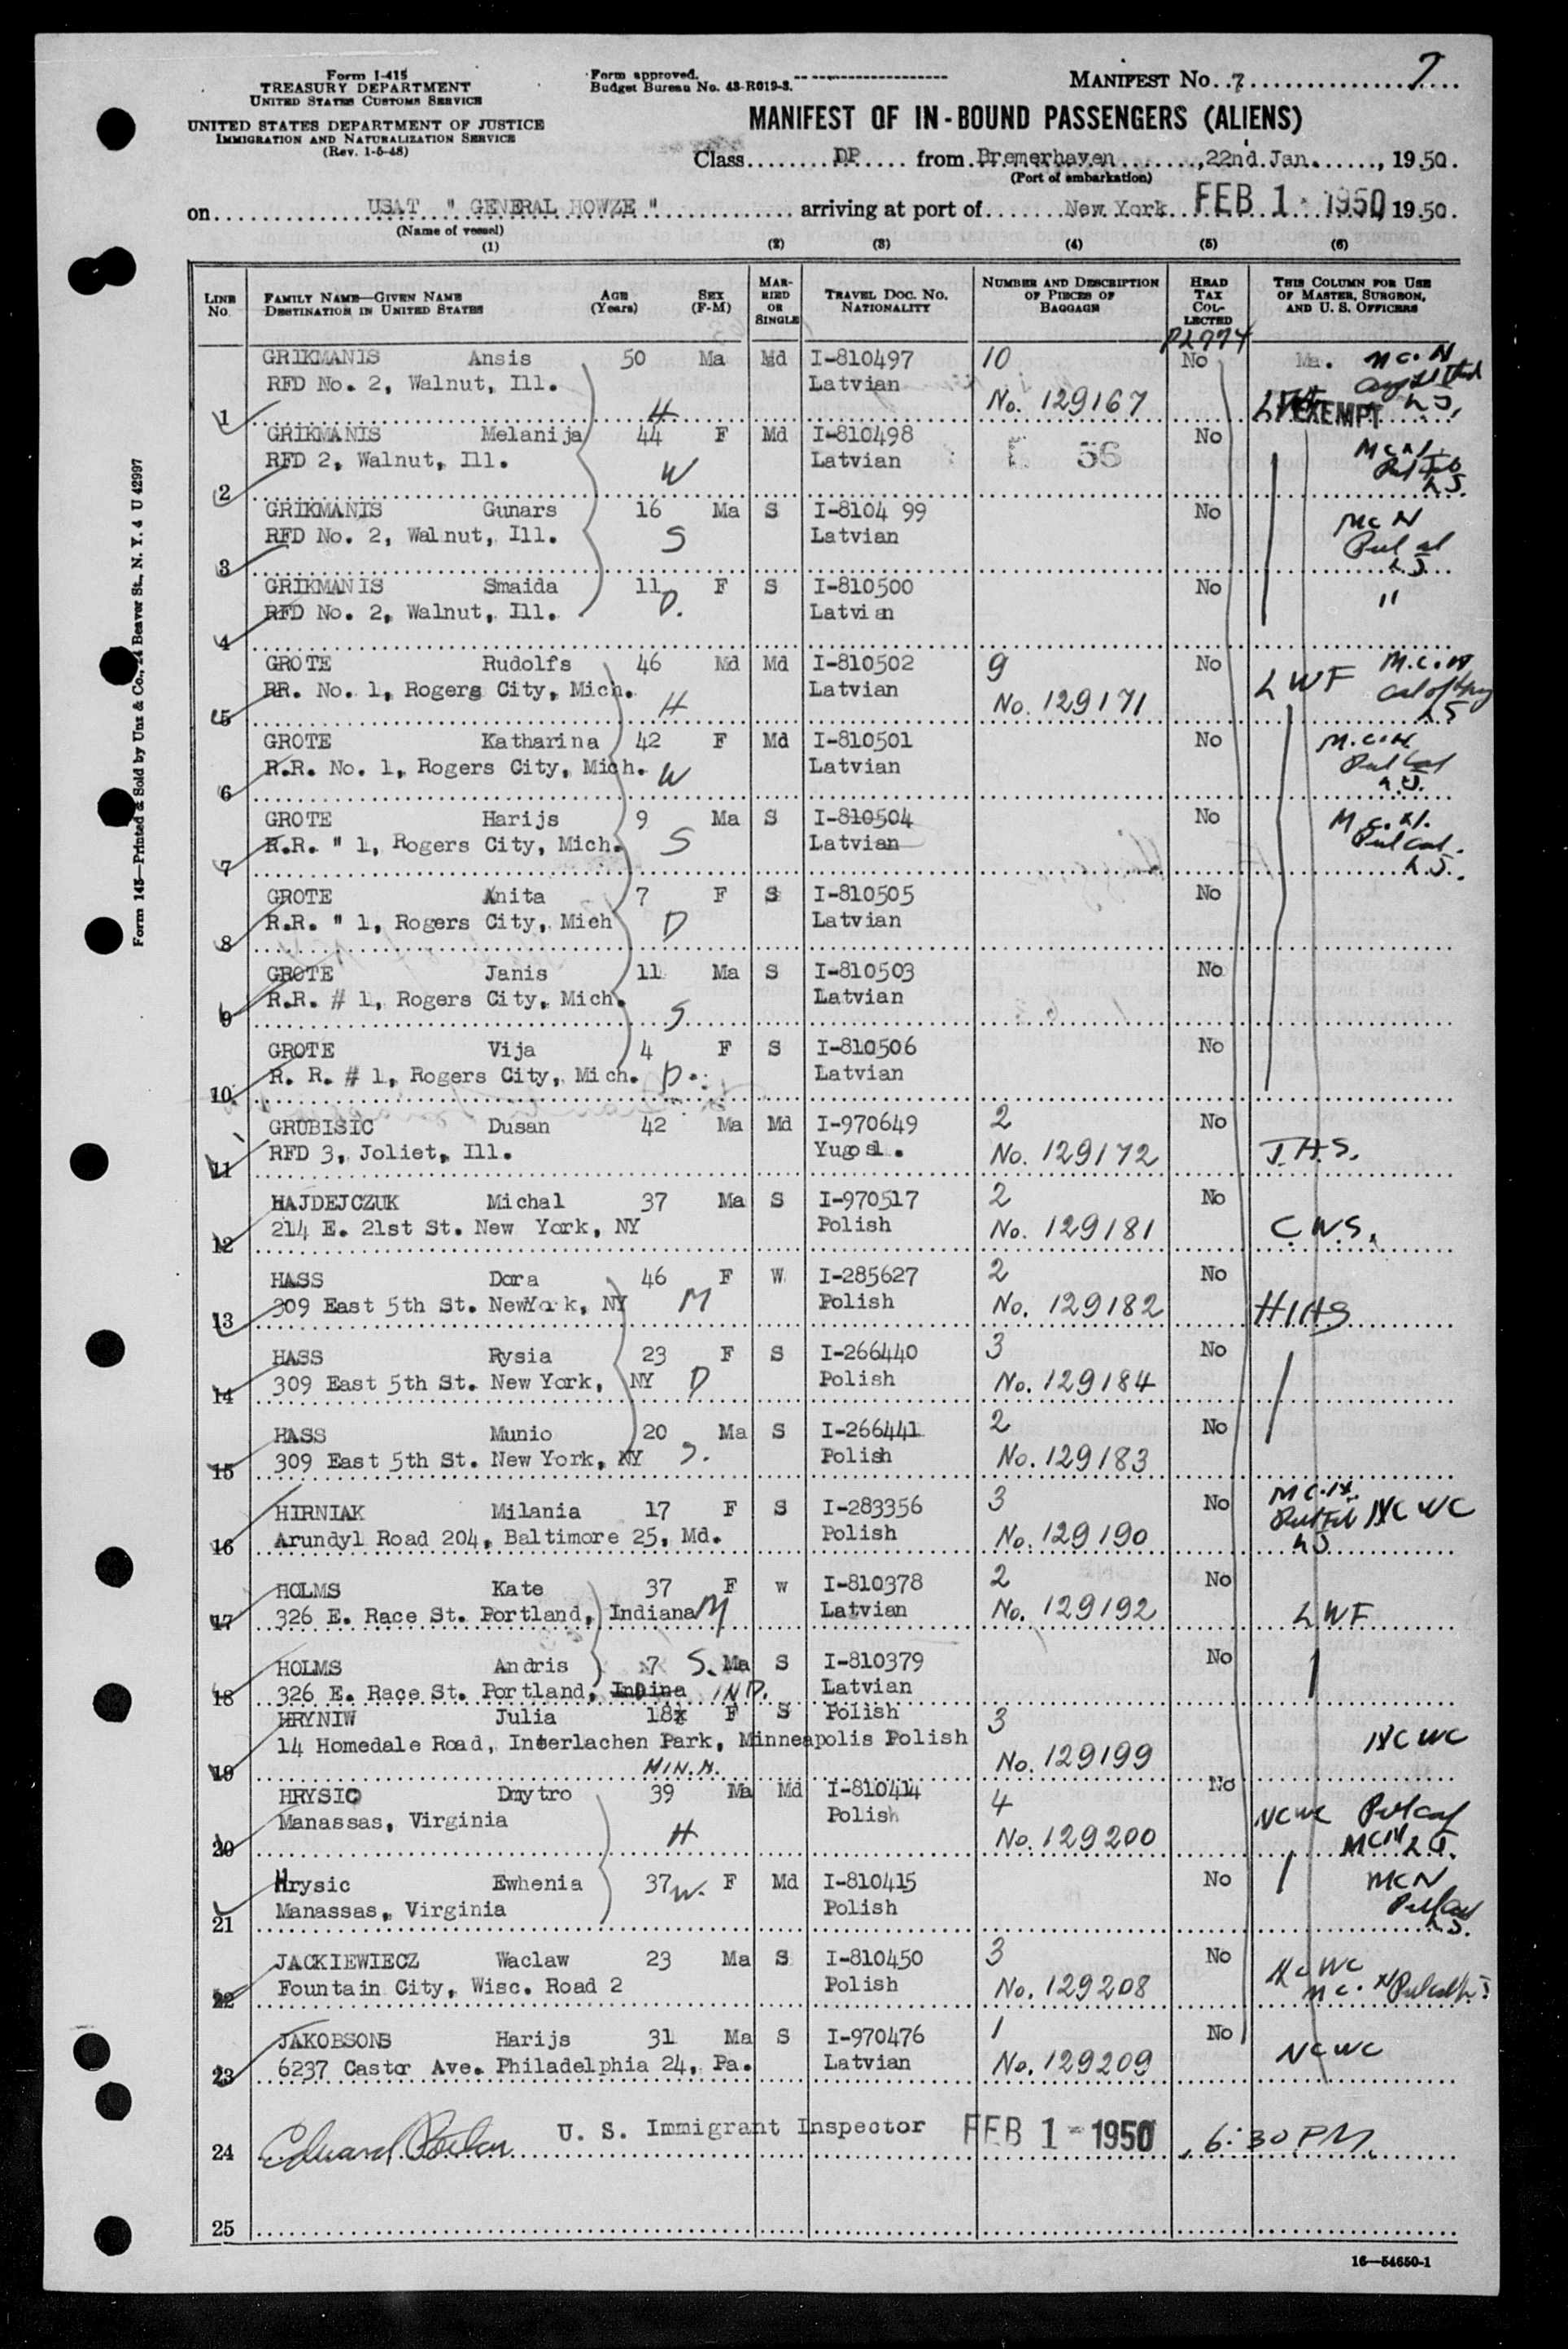 Form I-415
TREASURY DEPARTMENT
UNITED STATES CUSTOMS SERVICE
UNITED STATES DEPARTMENT OF JUSTICE
IMMIGRATION AND NATURALIZATION SERVICE
(Rev. 1-5-48)
Form approved.
Budget Bureau No. 43-R019-3.
MANIFEST No. 7 7
MANIFEST OF IN-BOUND PASSENGERS (ALIENS)
Class DP from Bremerhaven, 22nd Jan., 1950.
(Port of embarkation)
on USAT " GENERAL HOWZE " arriving at port of New York FEB 1 - 1950, 1950.
(Name of vessel)
(1) (2) (3) (4) (5) (6)
LINE No. FAMILY NAME—GIVEN NAME DESTINATION IN UNITED STATES AGE (Years) SEX (F-M) MARRIED OR SINGLE TRAVEL DOC. NO. NATIONALITY NUMBER AND DESCRIPTION OF PIECES OF BAGGAGE HEAD TAX COLLECTED THIS COLUMN FOR USE OF MASTER, SURGEON, AND U. S. OFFICERS
GRIKMANIS Ansis 50 Ma Md I-810497 10 No Ma. MC.N
RFD No. 2, Walnut, Ill. Latvian
1 H No. 129167 EXEMPT LS.
GRIKMANIS Melanija 44 F Md I-810498 No
RFD 2, Walnut, Ill. W Latvian 56
2 LS.
GRIKMANIS Gunars 16 Ma S I-8104 99 No MCN
RFD No. 2, Walnut, Ill. S Latvian
3 LS.
GRIKMANIS Smaida 11 F S I-810500 No "
RFD No. 2, Walnut, Ill. D. Latvian
4
GROTE Rudolfs 46 Md Md I-810502 9 No LWF M.C.N
RR. No. 1, Rogers City, Mich. Latvian
5 H No. 129171 LS
GROTE Katharina 42 F Md I-810501 No M.C.N.
R.R. No. 1, Rogers City, Mich. W Latvian
6 LS.
GROTE Harijs 9 Ma S I-810504 No M.C.N.
R.R. " 1, Rogers City, Mich. S Latvian
7 LS.
GROTE Anita 7 F S I-810505 No
R.R. " 1, Rogers City, Mich D Latvian
8
GROTE Janis 11 Ma S I-810503 No
R.R. # 1, Rogers City, Mich. Latvian
9 S
GROTE Vija 4 F S I-810506 No
R. R. # 1, Rogers City, Mich. D. Latvian
10
GRUBISIC Dusan 42 Ma Md I-970649 2 No
11 RFD 3, Joliet, Ill. Yugosl. No. 129172 I.H.S.
HAJDEJCZUK Michal 37 Ma S I-970517 2 No
12 214 E. 21st St. New York, NY Polish No. 129181 C.W.S.
HASS Dora 46 F W I-285627 2 No
13 309 East 5th St. NewYork, NY M Polish No. 129182 HIAS
HASS Rysia 23 F S I-266440 3 No
14 309 East 5th St. New York, NY D Polish No. 129184
HASS Munio 20 Ma S I-266441 2 No
15 309 East 5th St. New York, NY S. Polish No. 129183
HIRNIAK Milania 17 F S I-283356 3 No M.C.N. NCWC
16 Arundyl Road 204, Baltimore 25, Md. Polish No. 129190 LS
HOLMS Kate 37 F w I-810378 2 No
17 326 E. Race St. Portland, Indiana M Latvian No. 129192 LWF
HOLMS Andris 7 S. Ma S I-810379 No
18 326 E. Race St. Portland, Indina IND. Latvian
HRYNIW Julia 18x F S Polish 3
14 Homedale Road, Interlachen Park, Minneapolis Polish NCWC
19 MINN. No. 129199
HRYSIC Dmytro 39 Ma Md I-810414 4 No
Manassas, Virginia Polish NCWC
20 H No. 129200 MCN LS.
Hrysic Ewhenia 37 W. F Md I-810415 No MCN
Manassas, Virginia Polish
21 LS.
JACKIEWIECZ Waclaw 23 Ma S I-810450 3 No NCWC
22 Fountain City, Wisc. Road 2 Polish No. 129208
JAKOBSONS Harijs 31 Ma S I-970476 1 No
23 6237 Castor Ave. Philadelphia 24, Pa. Latvian No. 129209 NCWC
24 U. S. Immigrant Inspector FEB 1 - 1950, 6:30 PM.
25
16—54650-1
Form 145—Printed & Sold by Unz & Co., 24 Beaver St., N. Y. 4 U 42997